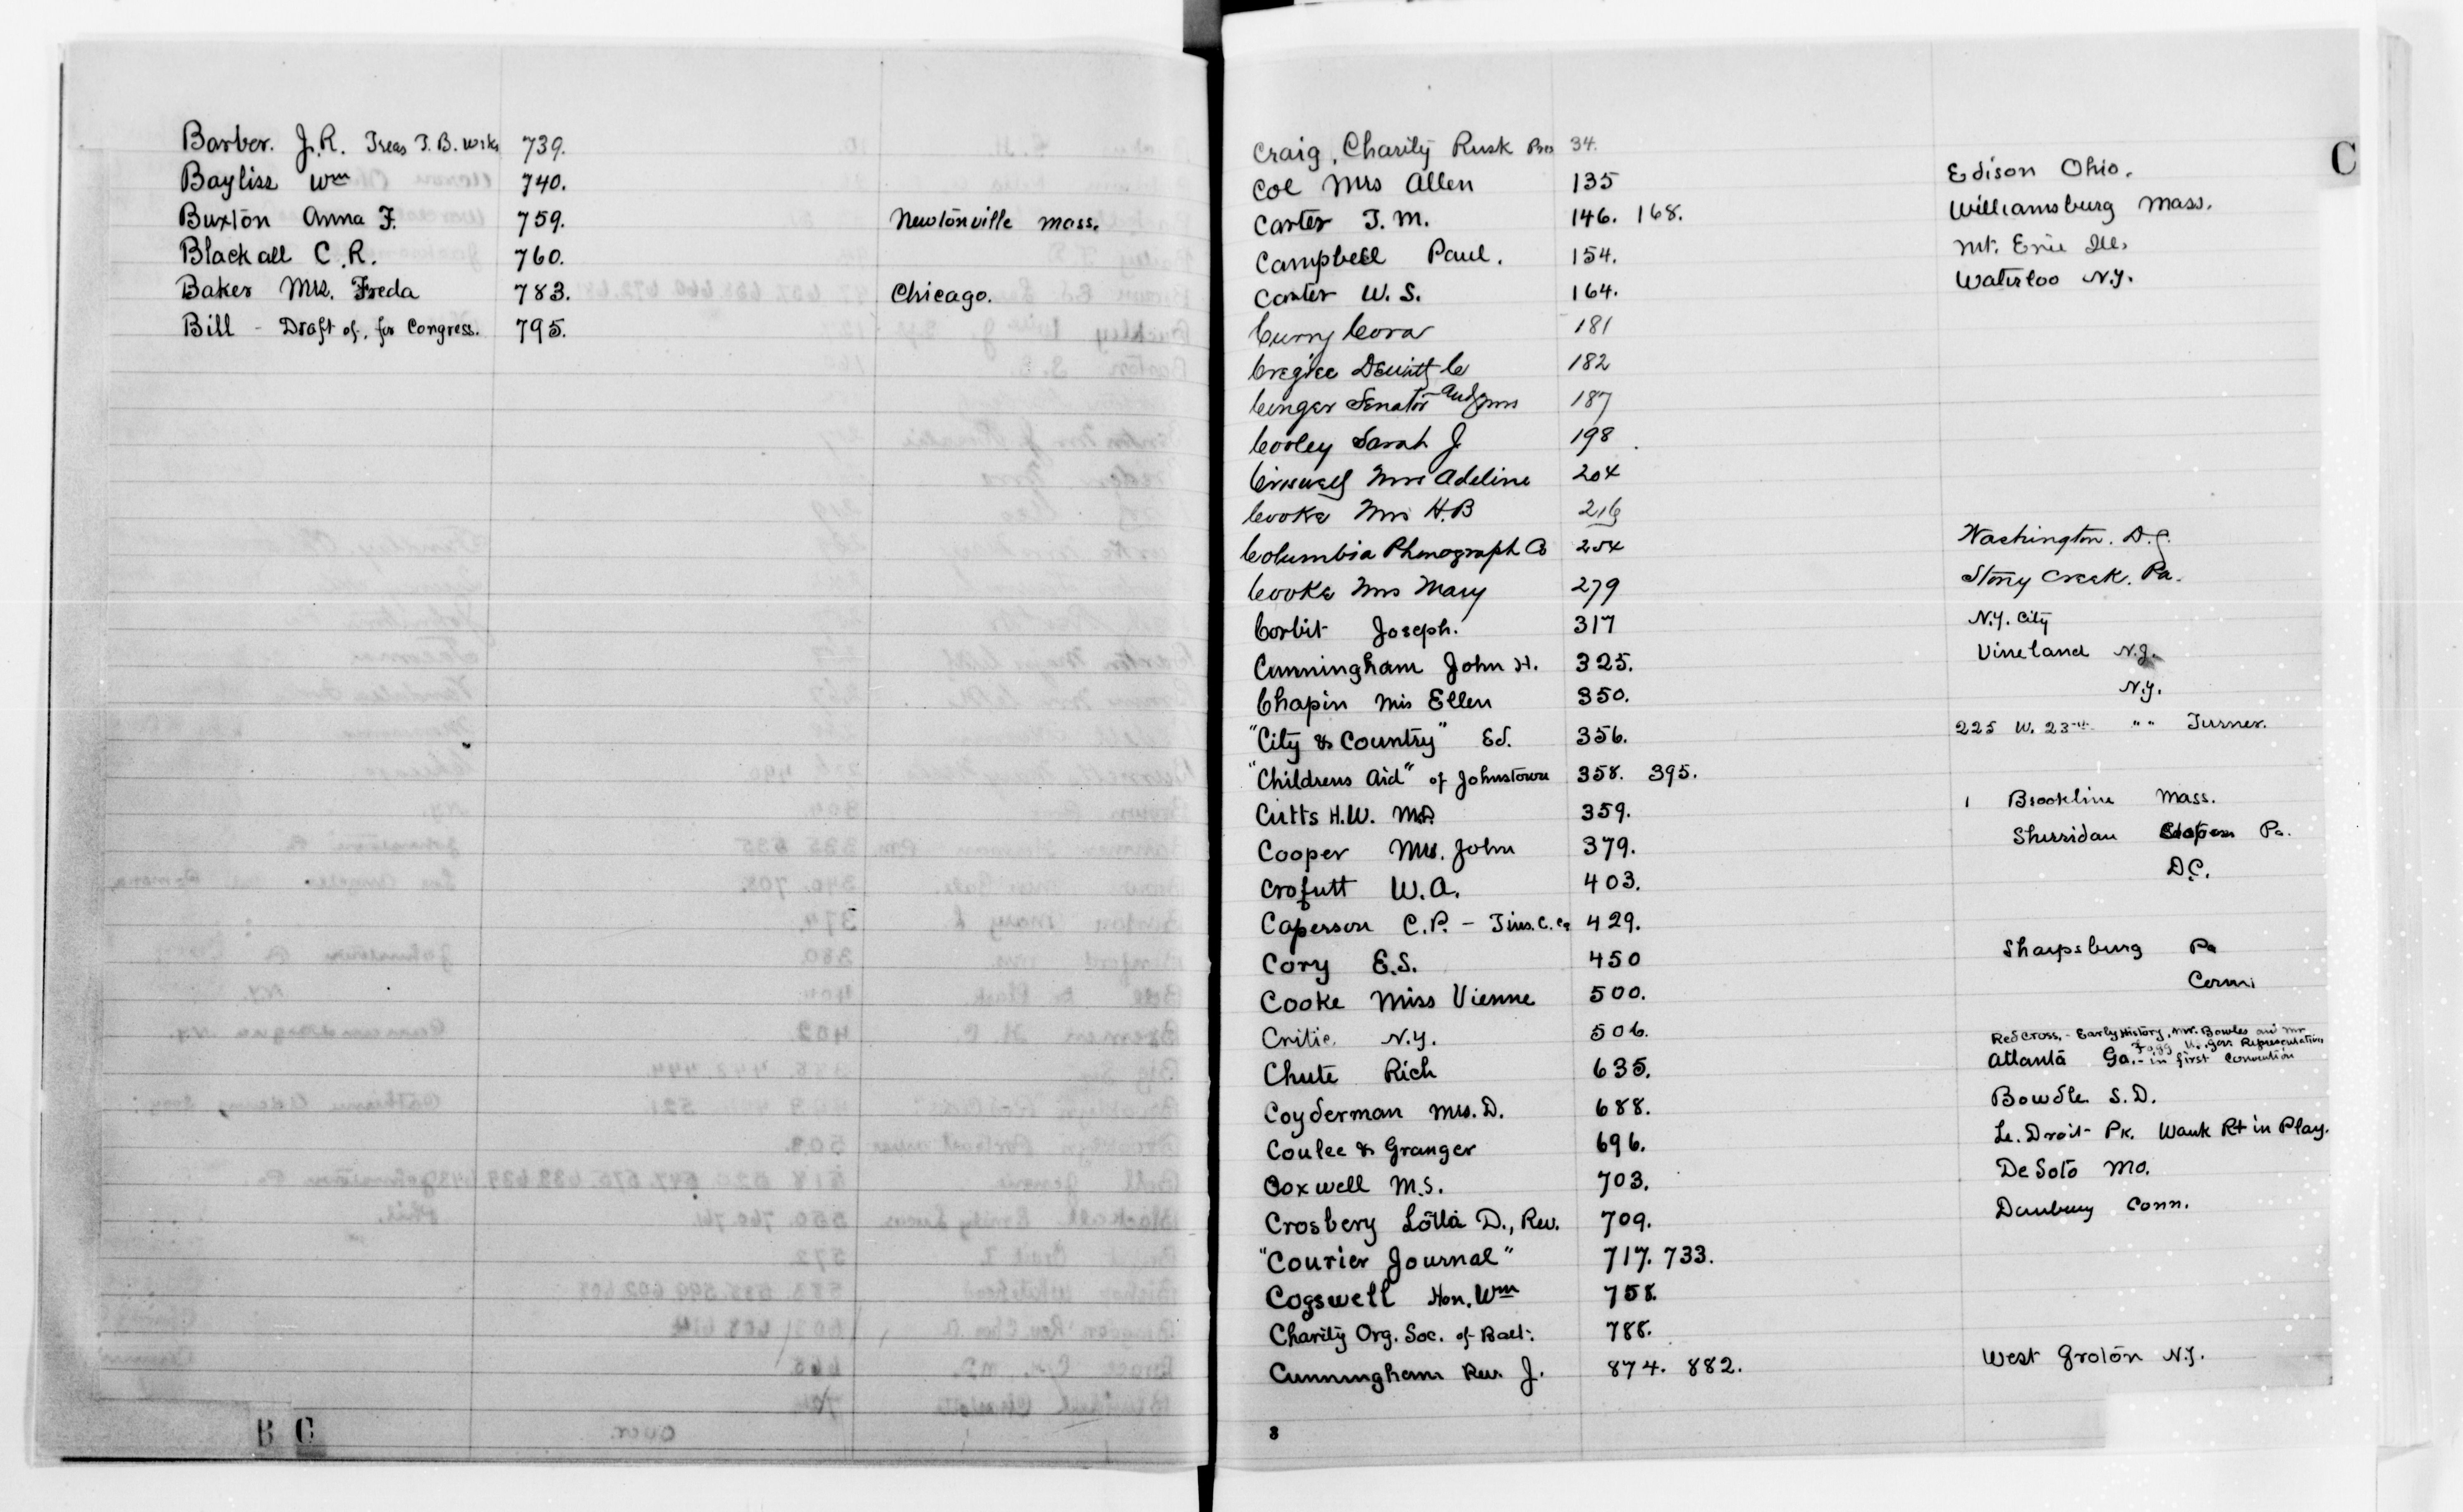 Barber. J.R. Treas T.B. Wrks 739.
Bayliss Wm 740.
Buxton Anna F. 759. Newtonville Mass.
Blackall C.R. 760.
Baker Mrs. Freda 783. Chicago.
Bill - Draft of, for Congress. 795.
B C
C
Craig, Charity Rusk Pres 34.
Coe Mrs Allen 135 Edison Ohio.
Carter T.M. 146. 168. Williamsburg Mass.
Campbell Paul. 154. Mt. Erie Ill.
Canter W.S. 164. Waterloo N.Y.
Curry Cora 181
Cregier Dewitt C 182
Conger Senator and Mrs 187
Cooley Sarah J 198
Criswell Mrs Adeline 204
Cooke Mrs H.B 216
Columbia Phonograph Co 254 Washington. D.C.
Cooke Mrs Mary 279 Stony Creek. Pa.
Corbit Joseph. 317 N.Y. City
Cunningham John H. 325. Vineland N.J.
Chapin Mis Ellen 350. N.Y.
"City & Country" Ed. 356. 225 W. 23rd " " Turner.
"Childrens Aid" of Johnstown 358. 395.
Cutts H.W. M.D. 359. Brookline Mass.
Cooper Mrs. John 379. Sherridan Pa.
Crofutt W.A. 403. D.C.
Caperson C.P. - Tins. C. Co 429.
Cory E.S. 450 Sharpsburg Pa
Cooke Miss Vienne 500. Conn.
Critic N.Y. 506. Red Cross, - Early History, Mr. Bowles and Mr
Fogg U.S. Gov Representatives
Chute Rich 635. Atlanta Ga. - in first Convention
Coyderman Mrs. D. 688. Bowdle S.D.
Coulee & Granger 696. Le. Droit Pk. Wank Rt in Play.
Coxwell M.S. 703. De Soto Mo.
Crosbery Lotta D., Rev. 709. Danbury Conn.
"Courier Journal" 717. 733.
Cogswell Hon. Wm 758.
Charity Org. Soc. of Balt. 788.
Cunningham Rev. J. 874. 882. West Groton N.Y.
8